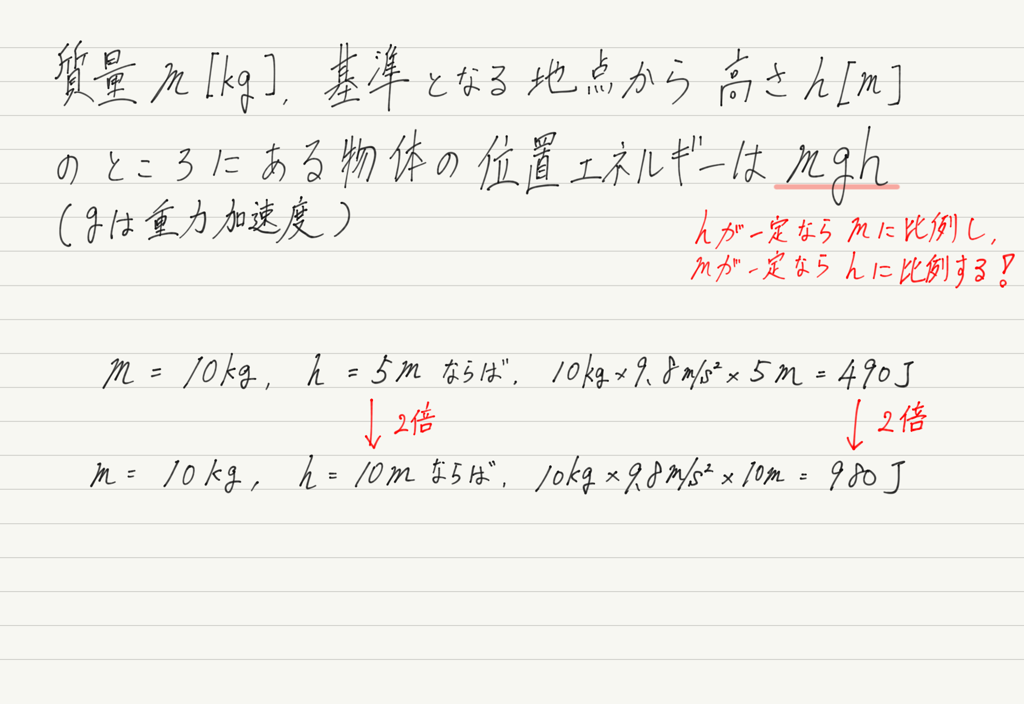 質量 m [kg], 基準となる地点から 高さ h [m]
のところにある物体の位置エネルギーは mgh
(gは重力加速度)
hが一定なら mに比例し,
mが一定なら hに比例する!
m = 10kg, h = 5m ならば, 10kg×9.8m/s²×5m = 490J
↓2倍 ↓2倍
m = 10kg, h = 10m ならば, 10kg×9.8m/s²×10m = 980J